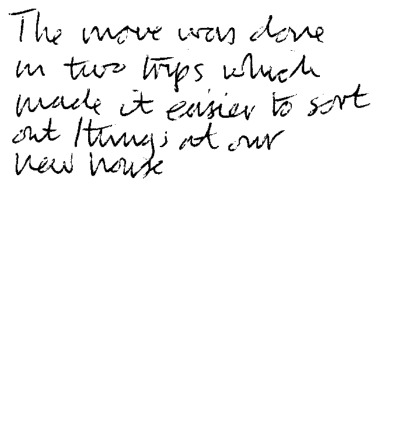 The move was done
in two trips which
made it easier to sort
out things at our
new house